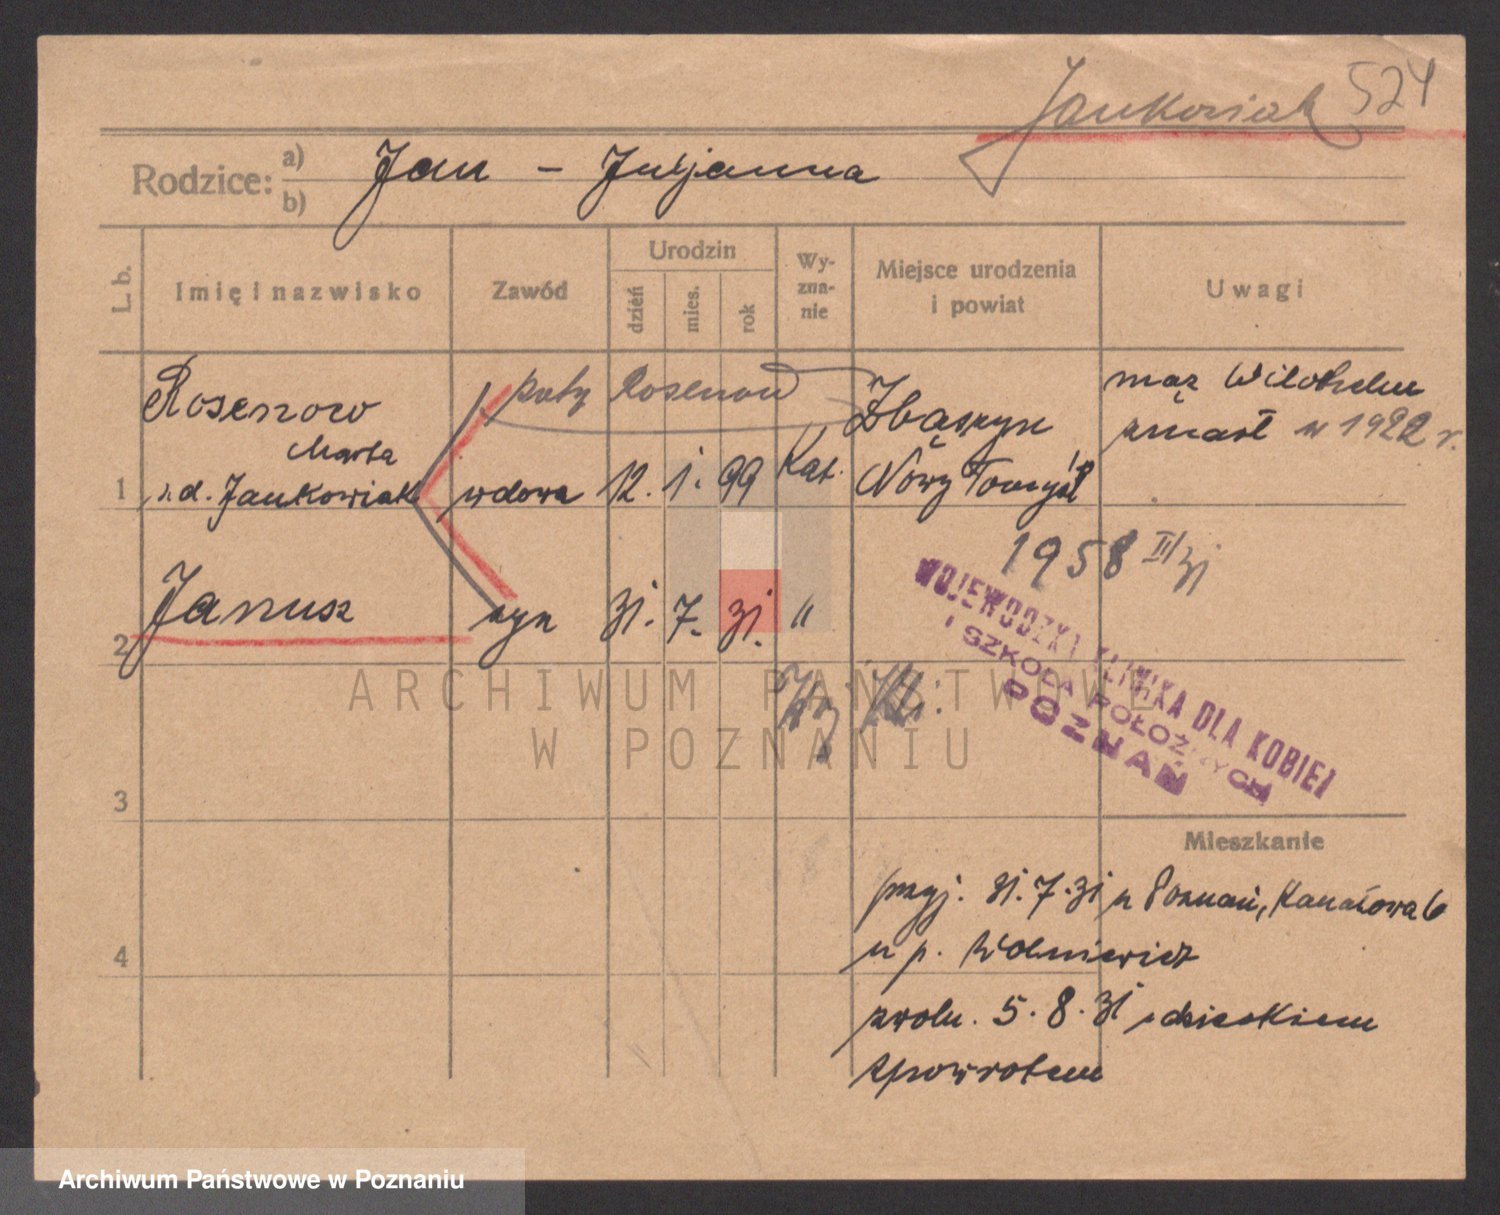 Jankowiak 524
Rodzice: a) b) Jan - Juljanna
L. b.
Imię i nazwisko
Zawód
Urodzin
dzień
mies.
rok
Wy-
zna-
nie
Miejsce urodzenia
i powiat
Uwagi
Rosenow
Marta
z.d. Jankowiak
Rosenow
1
wdowa
12. 1. 99
Kat.
Zbąszyn
Nowy Tomyśl
mąż Wilchelm
zmarł w 1922 r.
2
Janusz
syn
31. 7. 31.
"
1958
WOJEWÓDZKA KLINIKA DLA KOBIET
I SZKOŁA POŁOŻNYCH
POZNAŃ
ARCHIWUM PAŃSTWOWE
W POZNANIU
3
Mieszkanie
4
przyj. 31.7.31 z Poznań, Kanałowa 6
u p. Wolniewicz
zwoln. 5.8.31 z dzieckiem
zpowrotem
Archiwum Państwowe w Poznaniu